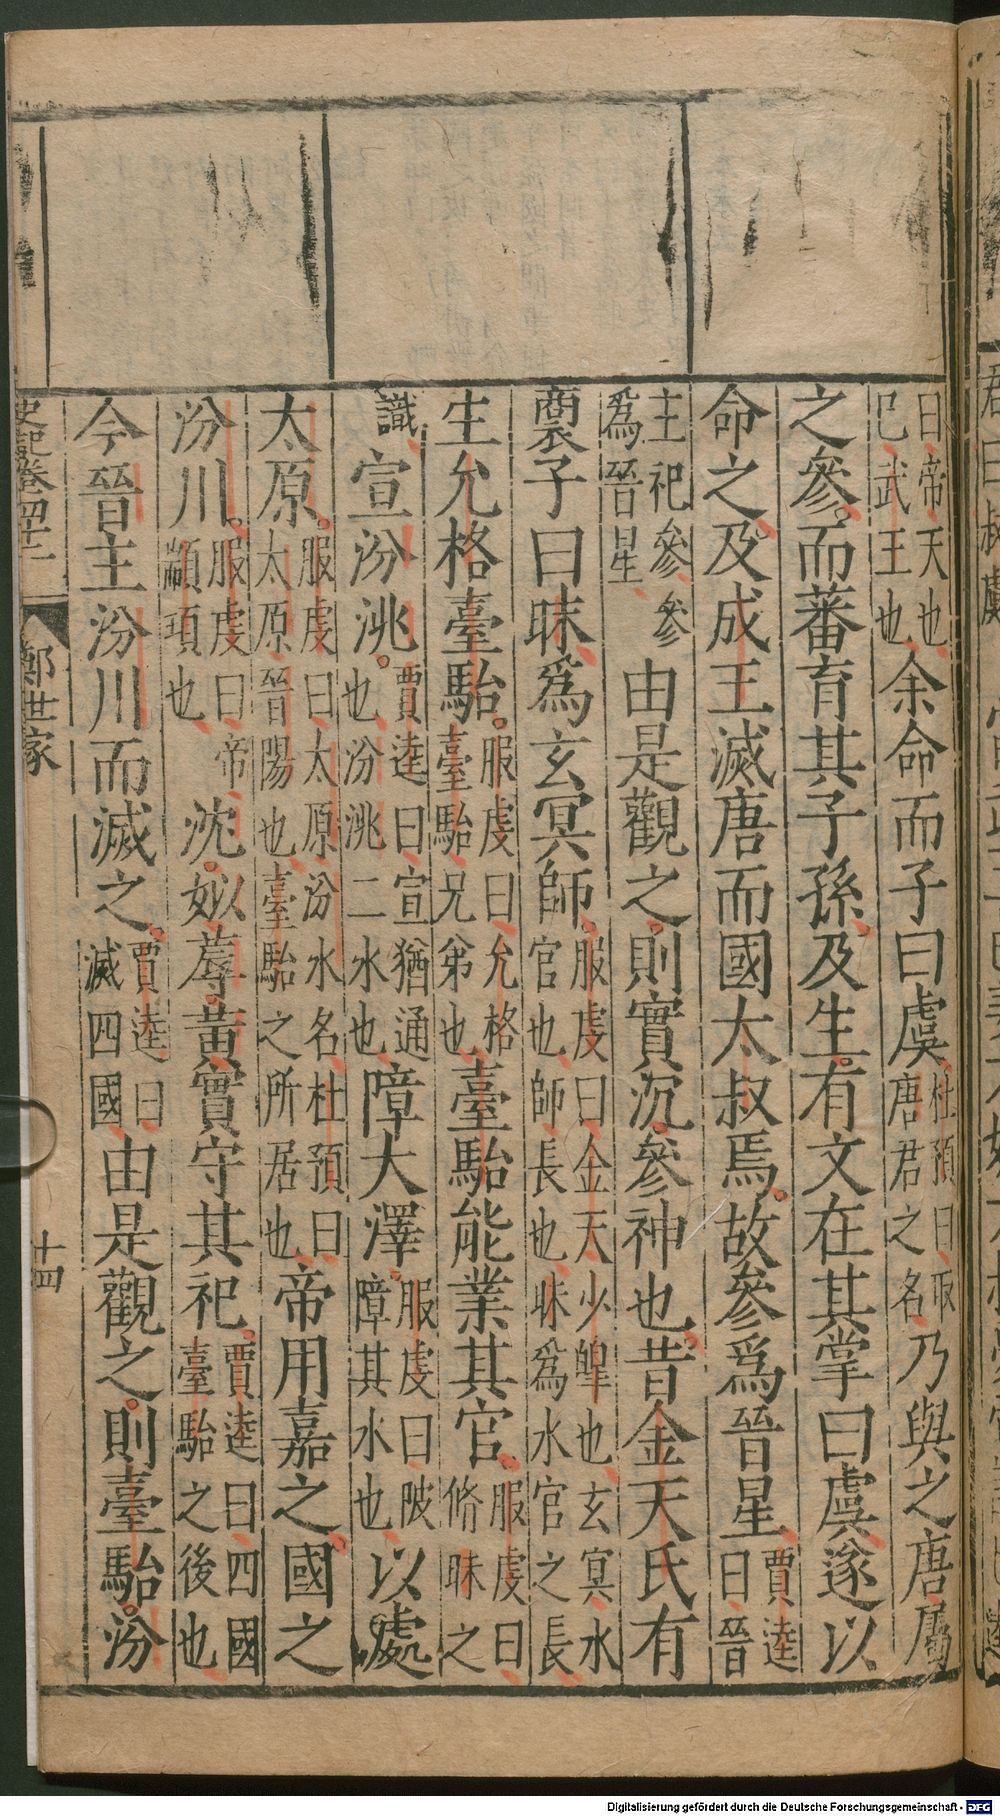 曰帝天也巳武王也余命而子曰虞杜預曰取唐君之名乃與之唐屬
之參而蕃育其子孫及生有文在其掌曰虞遂以
命之及成王滅唐而國太叔焉故參爲晉星賈逵曰晉
主祀參參爲晉星由是觀之則實沉參神也昔金天氏有
裔子曰昧爲玄冥師服虔曰金天少皥也玄冥水官也師長也昧爲水官之長
生允格臺駘服虔曰允格臺駘兄弟也臺駘能業其官服虔曰脩昧之
識宣汾洮賈逵曰宣猶通也汾洮二水也障大澤服虔曰陂障其水也以處
太原服虔曰太原汾水名杜預曰太原晉陽也臺駘之所居也帝用嘉之國之
汾川服虔曰帝顓頊也沈姒蓐黃實守其祀賈逵曰四國臺駘之後也
今晉主汾川而滅之賈逵曰滅四國由是觀之則臺駘汾
史記卷四十二 鄭世家 十四
Digitalisierung gefördert durch die Deutsche Forschungsgemeinschaft - DFG